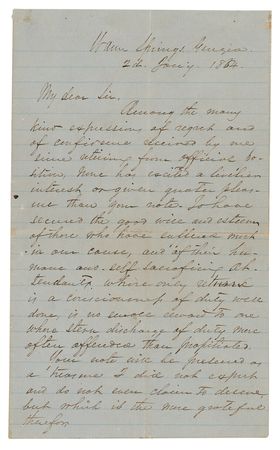 Warm Springs Georgia
2d. Jan'y. 1864.
My dear Sir,
Among the many
kind expressions of regret and
of confidence received by me
since retiring from official po-
sition, none has excited a livelier
interest or given greater pleas-
ure than your note. To have
secured the good will and esteem
of those who have suffered most
in our cause, and of their hu-
mane and self sacrificing at-
tendants, whose only
is a consciousness of duty well
done, is no small reward to one
whose stern discharge of duty more
often offended than propitiated.
Your note will be preserved as
a treasure I did not expect
and do not even claim to deserve,
but which is the more grateful
therefor.